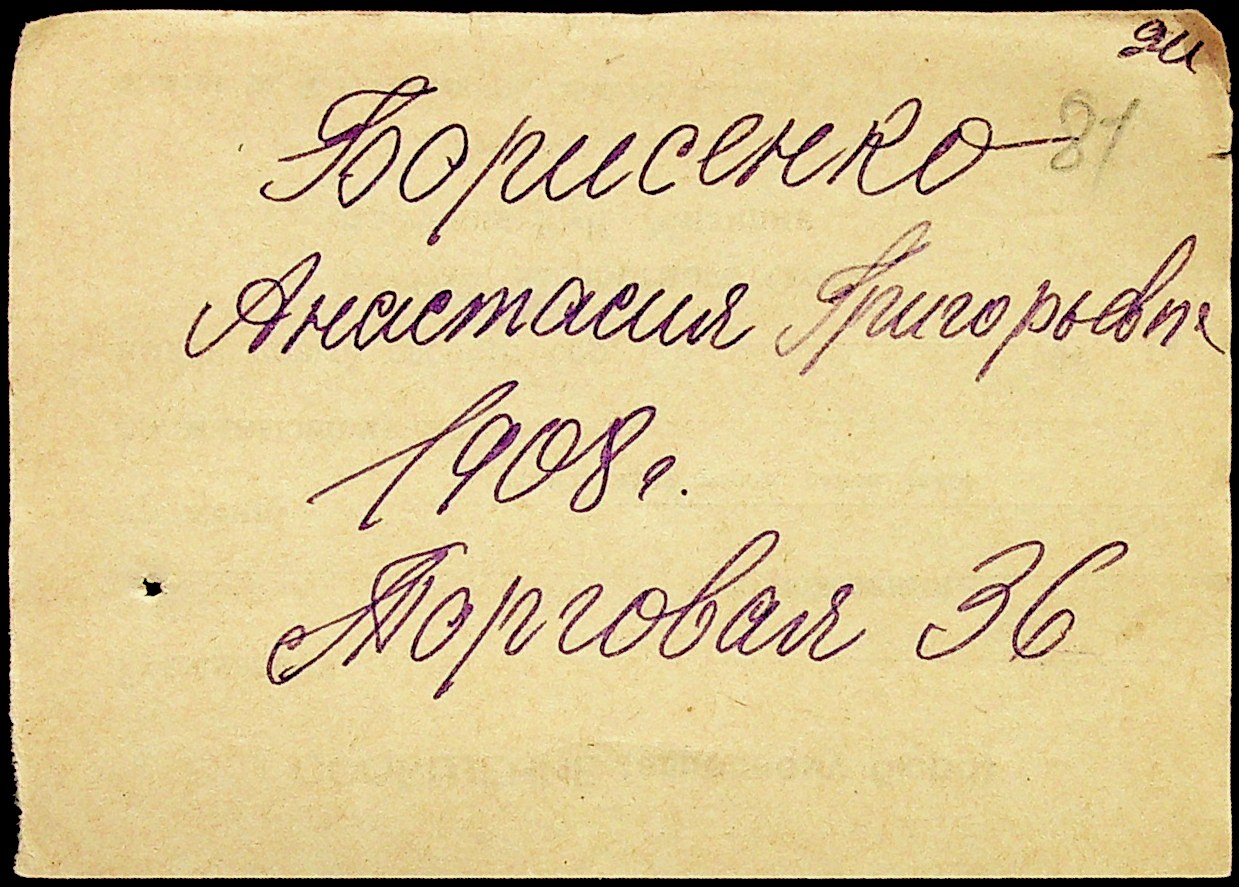 81
Борисенко
Анастасия Григорьевна
1908 г.
Торговая 36